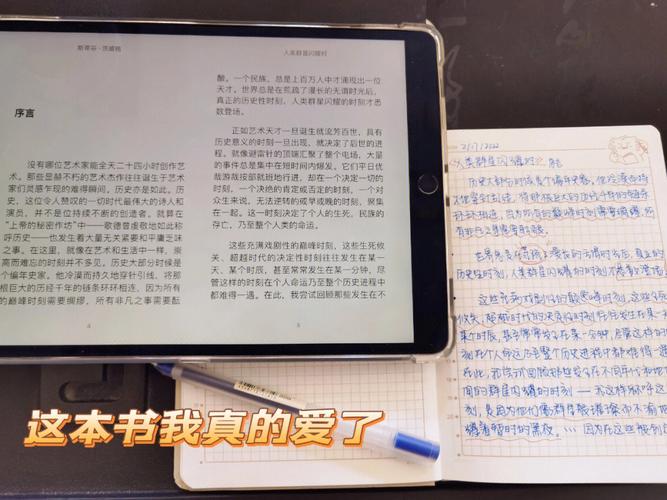 斯蒂芬·茨威格
序言
没有哪位艺术家能全天二十四小时创作艺
术。那些显赫不朽的艺术杰作往往诞生于艺术
家们灵感乍现的难得瞬间。历史亦是如此。历
史，这位令人赞叹的一切时代最伟大的诗人和
演员，并不是位持续不断的创造者。就算在
“上帝的秘密作坊”——歌德曾虔敬地如此称
呼历史——也发生着大量无关紧要和平庸乏味
之事。在这里，就像在艺术和生活中一样，崇
高而难忘的时刻并不多见。历史大部分时候是
个编年史家。他冷漠而持久地穿针引线，将那
根巨大的历经千年的链条环环相连，因为所有
的巅峰时刻需要绸缪，所有非凡之事需要酝
4
人类群星闪耀时
酿。一个民族，总是上百万人中才涌现出一位
天才。世界总是在荒疏了漫长的无谓时光后，
真正的历史性时刻，人类群星闪耀的时刻才悉
数登场。
正如艺术天才一旦诞生就流芳百世，具有
历史意义的时刻一旦出现，就决定了后世的进
程。就像避雷针的顶端汇聚了整个电场，大量
的事件总是集中在短时间内爆发。它们平日优
哉游哉按部就班地行进，却在一个决定一切的
时刻，一个决绝的肯定或否定的时刻，一个对
众生来说，无法逆转的或早或晚的时刻，聚集
在一起。这一时刻决定了个人的生死、民族的
存亡，乃至整个人类的命运。
这些充满戏剧性的巅峰时刻，这些生死攸
关、超越时代的决定性时刻往往发生在某一
天，某个时辰，甚至常常发生在某一分钟，尽
管这样的时刻在个人命运乃至整个历史进程中
都难得一遇。在此，我尝试回顾那些发生在不
5
《人类群星闪耀时》
世界总是在荒疏了漫长的无谓时光后，真正的
历史性时刻，人类群星闪耀的时刻
某个时辰，甚至常常发生在某一分钟，尽管这样的时
刻在个人命运乃至整个历史进程中都难得一遇
在此，我尝试回顾那些发生在不同年代和地
间的群星闪耀的时刻——我这样称呼这
这本书我真的爱了